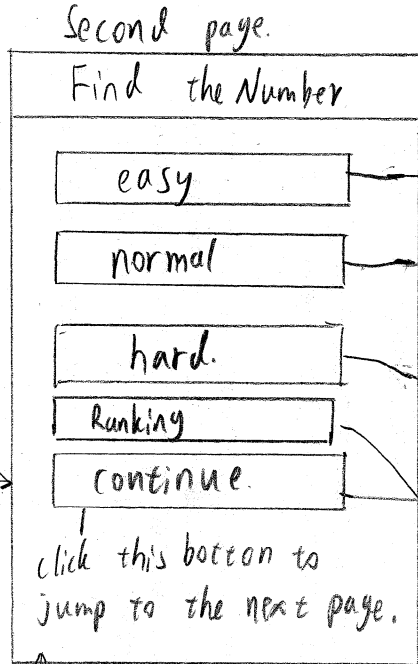 Second page.
Find the Number
easy
normal
hard.
Ranking
continue.
click this botton to
jump to the next page.